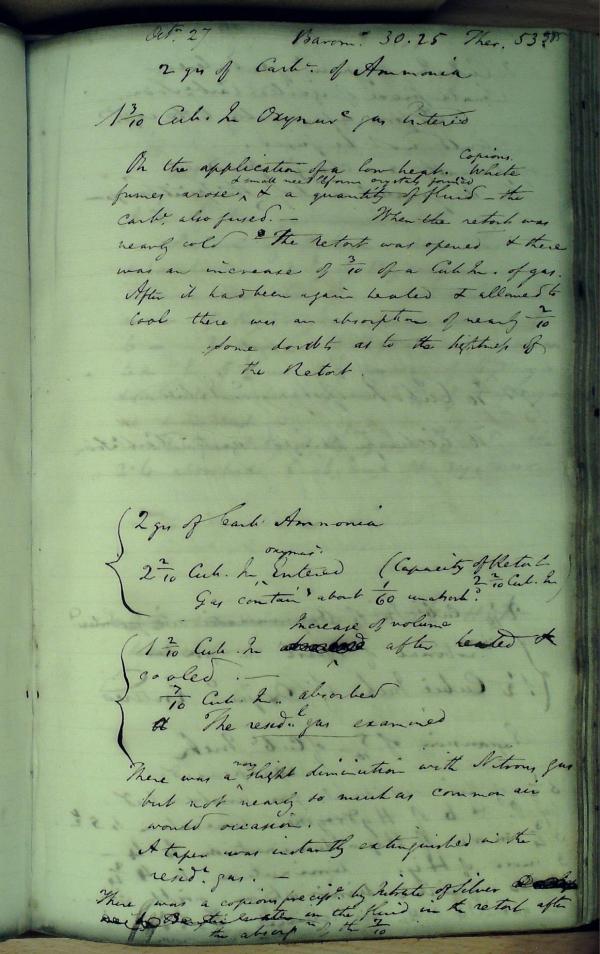 Oct. 27 Barom. 30.25 Ther. 53
2 grs of Carb. of Ammonia
1 3/10 Cub. In Oxymure gas entered
On the application of a low heat. Copious White
fumes arose, & small needleform crystals formed & a quantity of fluid – the
carbe. also fused. – When the retort was
nearly cold The Retort was opened & there
was an increase of 3/10 of a Cub In. of gas.
After it had been again heated & allowed to
cool there was an absorption of nearly 2/10
some doubts as to the tightness of
the Retort.
2 grs of Carb. Ammonia
2 2/10 Cub. In oxymur. Entered (Capacity of Retort
Gas contain.g about 1/60 unabsorb. 2 2/10 Cub. In)
Increase of volume
1 2/10 Cub. In after heated &
cooled. —
7/10 Cub. In. absorbed
The resid.l gas examined
There was a very slight diminution with Nitrous gas
but not nearly so much as common air
would occasion.
A taper was instantly extinguished in the
resid.l gas. —
There was a copious precip.t by Nitrate of Silver
in the fluid in the retort after
the absorp of the 7/10